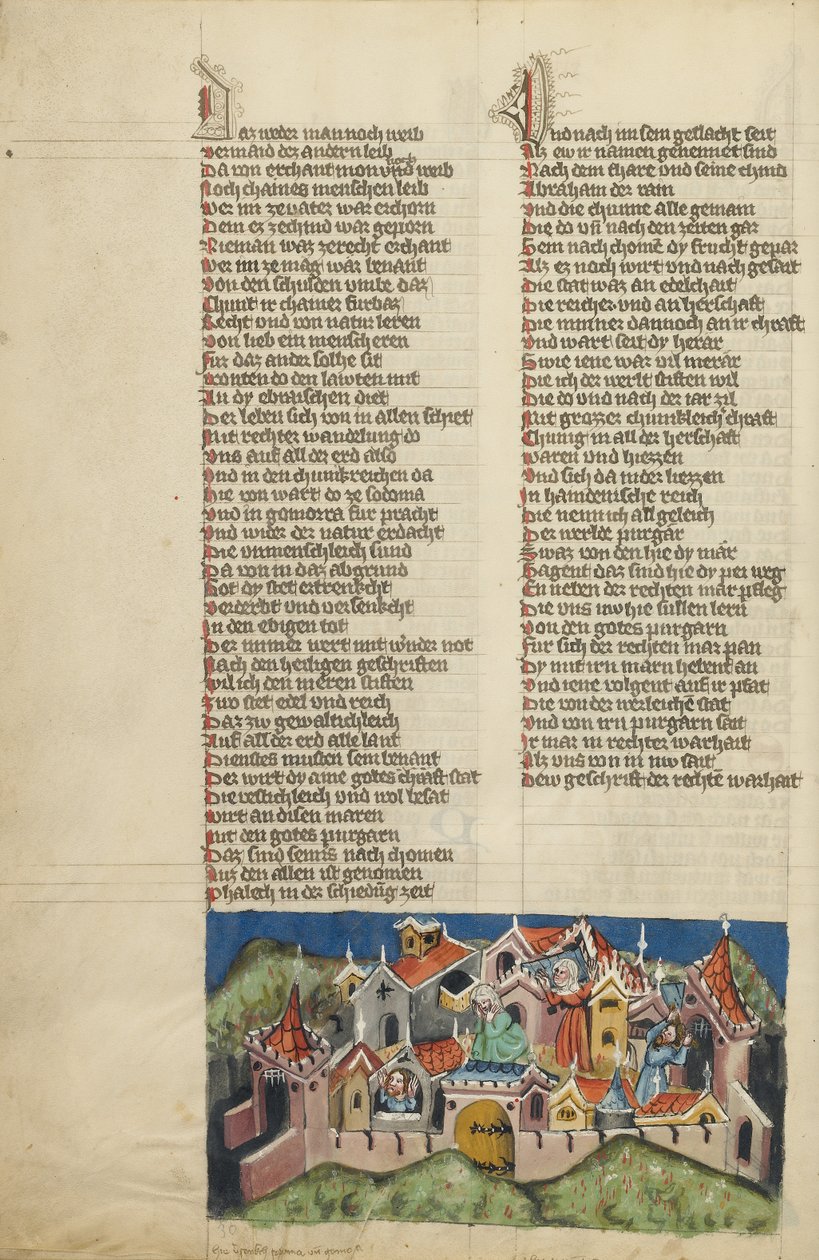 Daz weder man noch weib
Vermaid dez andern leib
Da von erchant mon noch weib
Noch chaines menschen leib
Wer im ze vater war erchorn
Dem ez ze chind war geporn
Nieman waz ze recht erchant
Wer im ze mag war benant
Von den schulden umbe daz
Chunt ir chainer furbaz
Recht vnd von natur leren
Von lieb ein mensch eren
Fur daz ander solhe sit
Wonten do den lawten mit
An dy ebraischen diet
Der leben sich von in allen schiet
Mit rechter wandelung do
Vns auf all der erd also
Vnd in den chunkreichen da
Hie von wart do ze sodoma
Vnd in gomorra fur pracht
Vnd wider der natur erdacht
Die vnmenschleich sund
Da von in daz abgrund
Got dy stet ertrenkcht
Verderbt vnd versenkcht
In den ebigen tot
Der nimer wert mit wnder not
Nach den heiligen geschriften
Wil ich den meren stiften
Zwo stet edel vnd reich
Daz zw gewaltichleich
Auf all der erd alle lant
Dienstes musten sein benant
Der wirt dy aine gotes chraft stat
Die vestichleich vnd wol besat
Wirt an disen maren
Mit den gotes purgarn
Daz sind semis nach chomen
Auz den allen ist genomen
Phalech in der schiedung zeit
Vnd nach im sein geslacht seit
Alz ew ir namen genennet sind
Nach dem thare vnd seine chind
Abraham der rain
Vnd die chunne alle gemain
Die do vn nach den zeiten gar
Sem nach chome dy frucht gepar
Alz ez noch wirt vnd nach gesait
Die stat waz an edelchait
Die reicher vnd an herschaft
Die minner dannoch an ir chraft
Vnd wart seit dy herar
Swie iene war vil merar
Die ich der werlt stiften wil
Die do vnd nach der iar zil
Mit grozzer chunkleich chraft
Chunig in all der herschaft
Waren vnd hiezzen
Vnd sich da nider liezzen
In haidenische reich
Die nenn ich all geleich
Der werlde purgar
Swaz von den hie dy mar
Sagent daz sind hie dy pei weg
En neben der rechten mar pfleg
Die vns nw hie sullen lern
Von den gotes purgarn
Fur sich der rechten mar pan
Dy mit irn marn hebent an
Vnd iene volgent auf ir pfat
Die von der werleiche stat
Vnd von irn purgarn sait
Ir mar in rechter warhait
Alz vns von in nw sait
Dew geschrift der rechte warhait